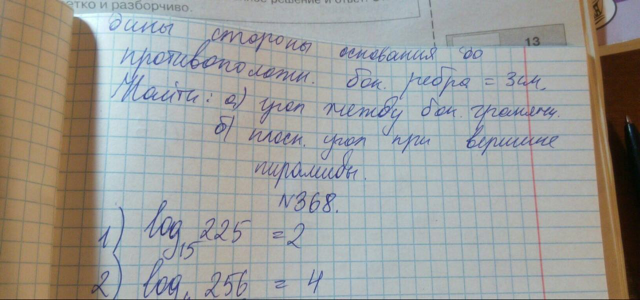 етко и разборчиво.
ое решение и ответ.
13
дины стороны основания до
противоположн. бок. ребра = 3м.
Найти: а) угол между бок. гранями.
б) плоск. угол при вершине
пирамиды.
№368.
1) log₁₅ 225 = 2
2) log 256 = 4